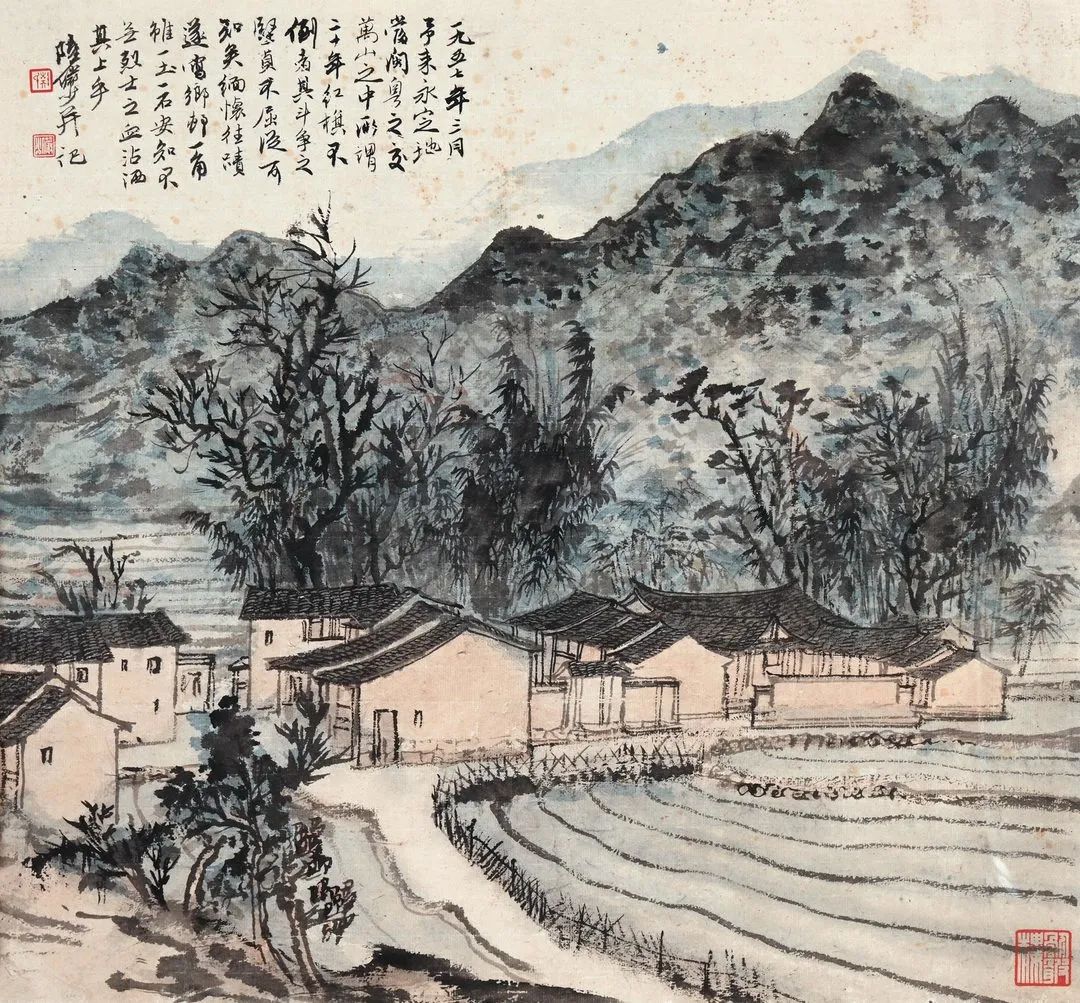 一九五七年三月
予来永定地
當闽粤之交
萬山之中所谓
二十年红旗不
倒者其斗争之
堅貞不屈从可
知矣缅懷往蹟
遂寫鄉邨一角
雖一土一石安知不
是烈士之血沾洒
其上乎
陸儼少并记